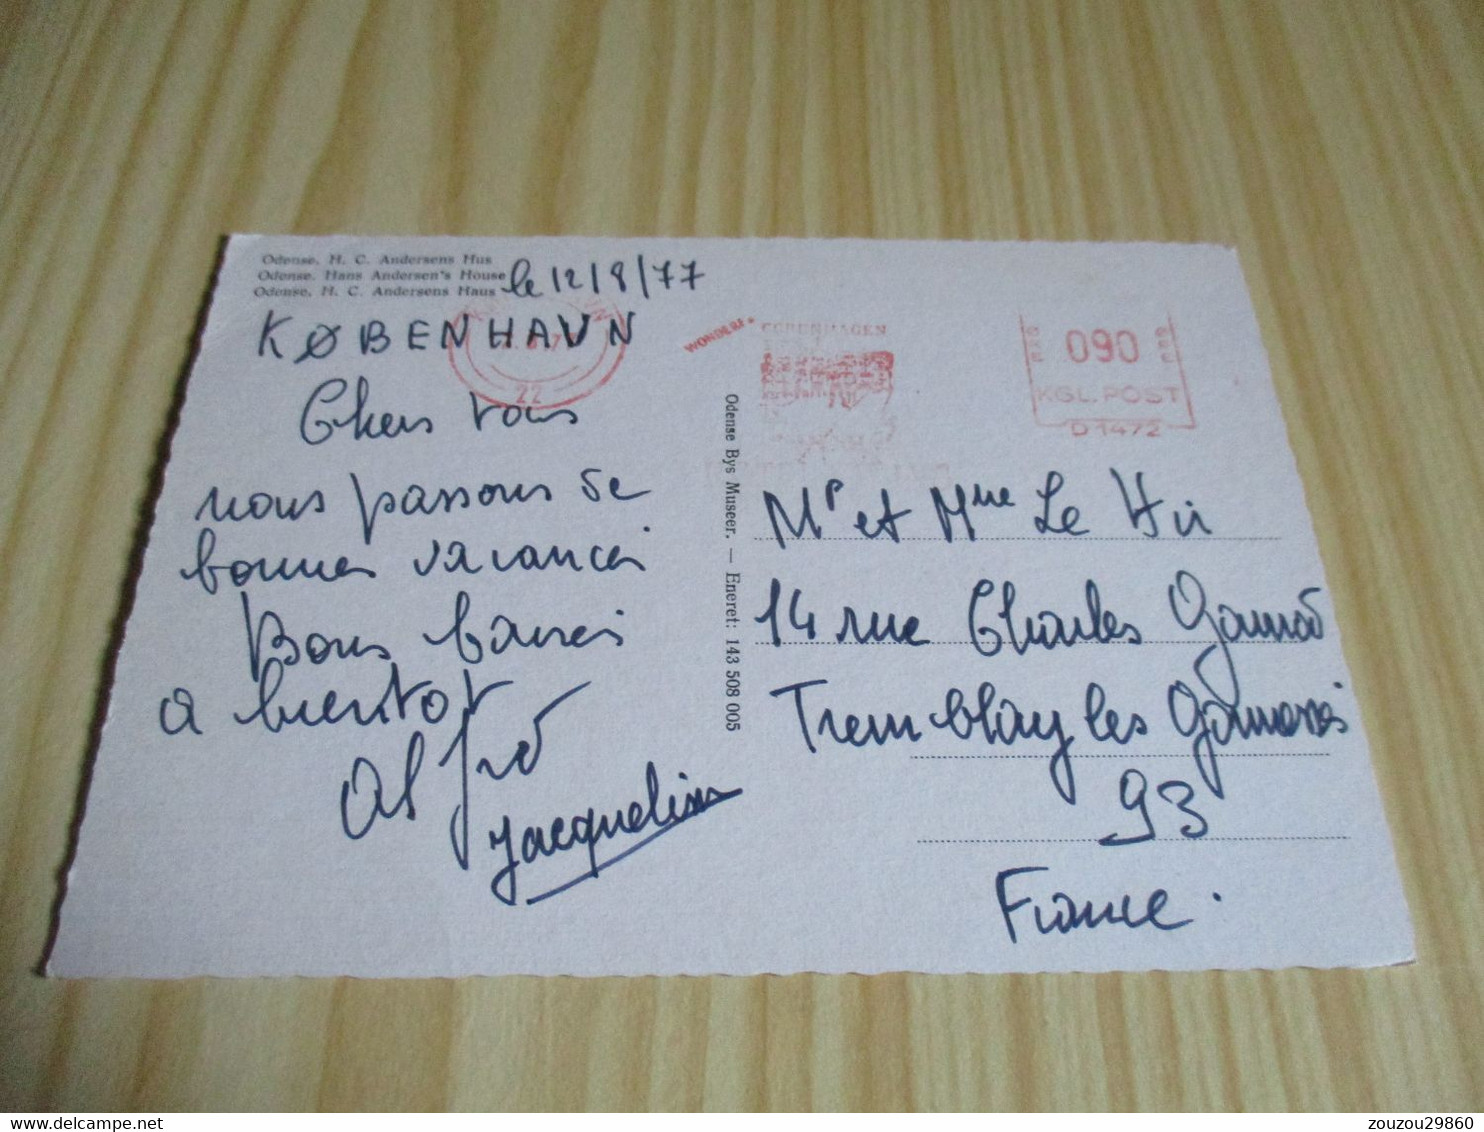 Odense. H. C. Andersens Hus
Odense. Hans Andersen's House
Odense. H. C. Andersens Haus
le 12/8/77
KØBENHAVN
Chers vous
nous passons de
bonnes vacances
Bons baisers
a bientot
Alfred
Jacqueline
22
WONDERFUL
COPENHAGEN
090
KGL. POST
D 1472
Odense Bys Museer. — Eneret: 143 508 005
Mr et Mme Le
14 rue Charles Gounod
Tremblay les Gonesses
93
France.
zouzou29860